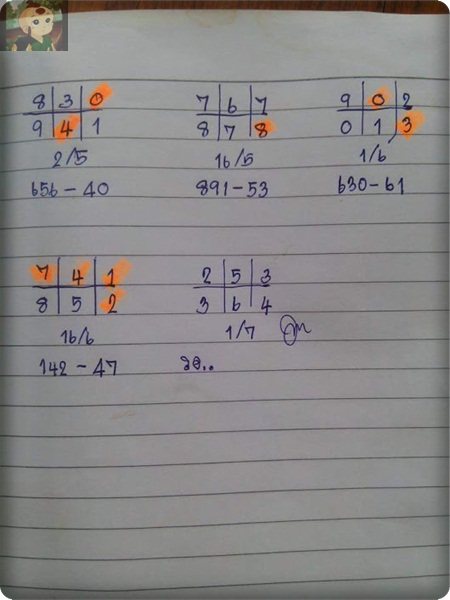 8 3 0
9 4 1
2/5
656-40
7 6 7
8 7 8
16/5
891-53
9 0 2
0 1 3
1/6
630-61
7 4 1
8 5 2
16/6
142-47
2 5 3
3 6 4
1/7